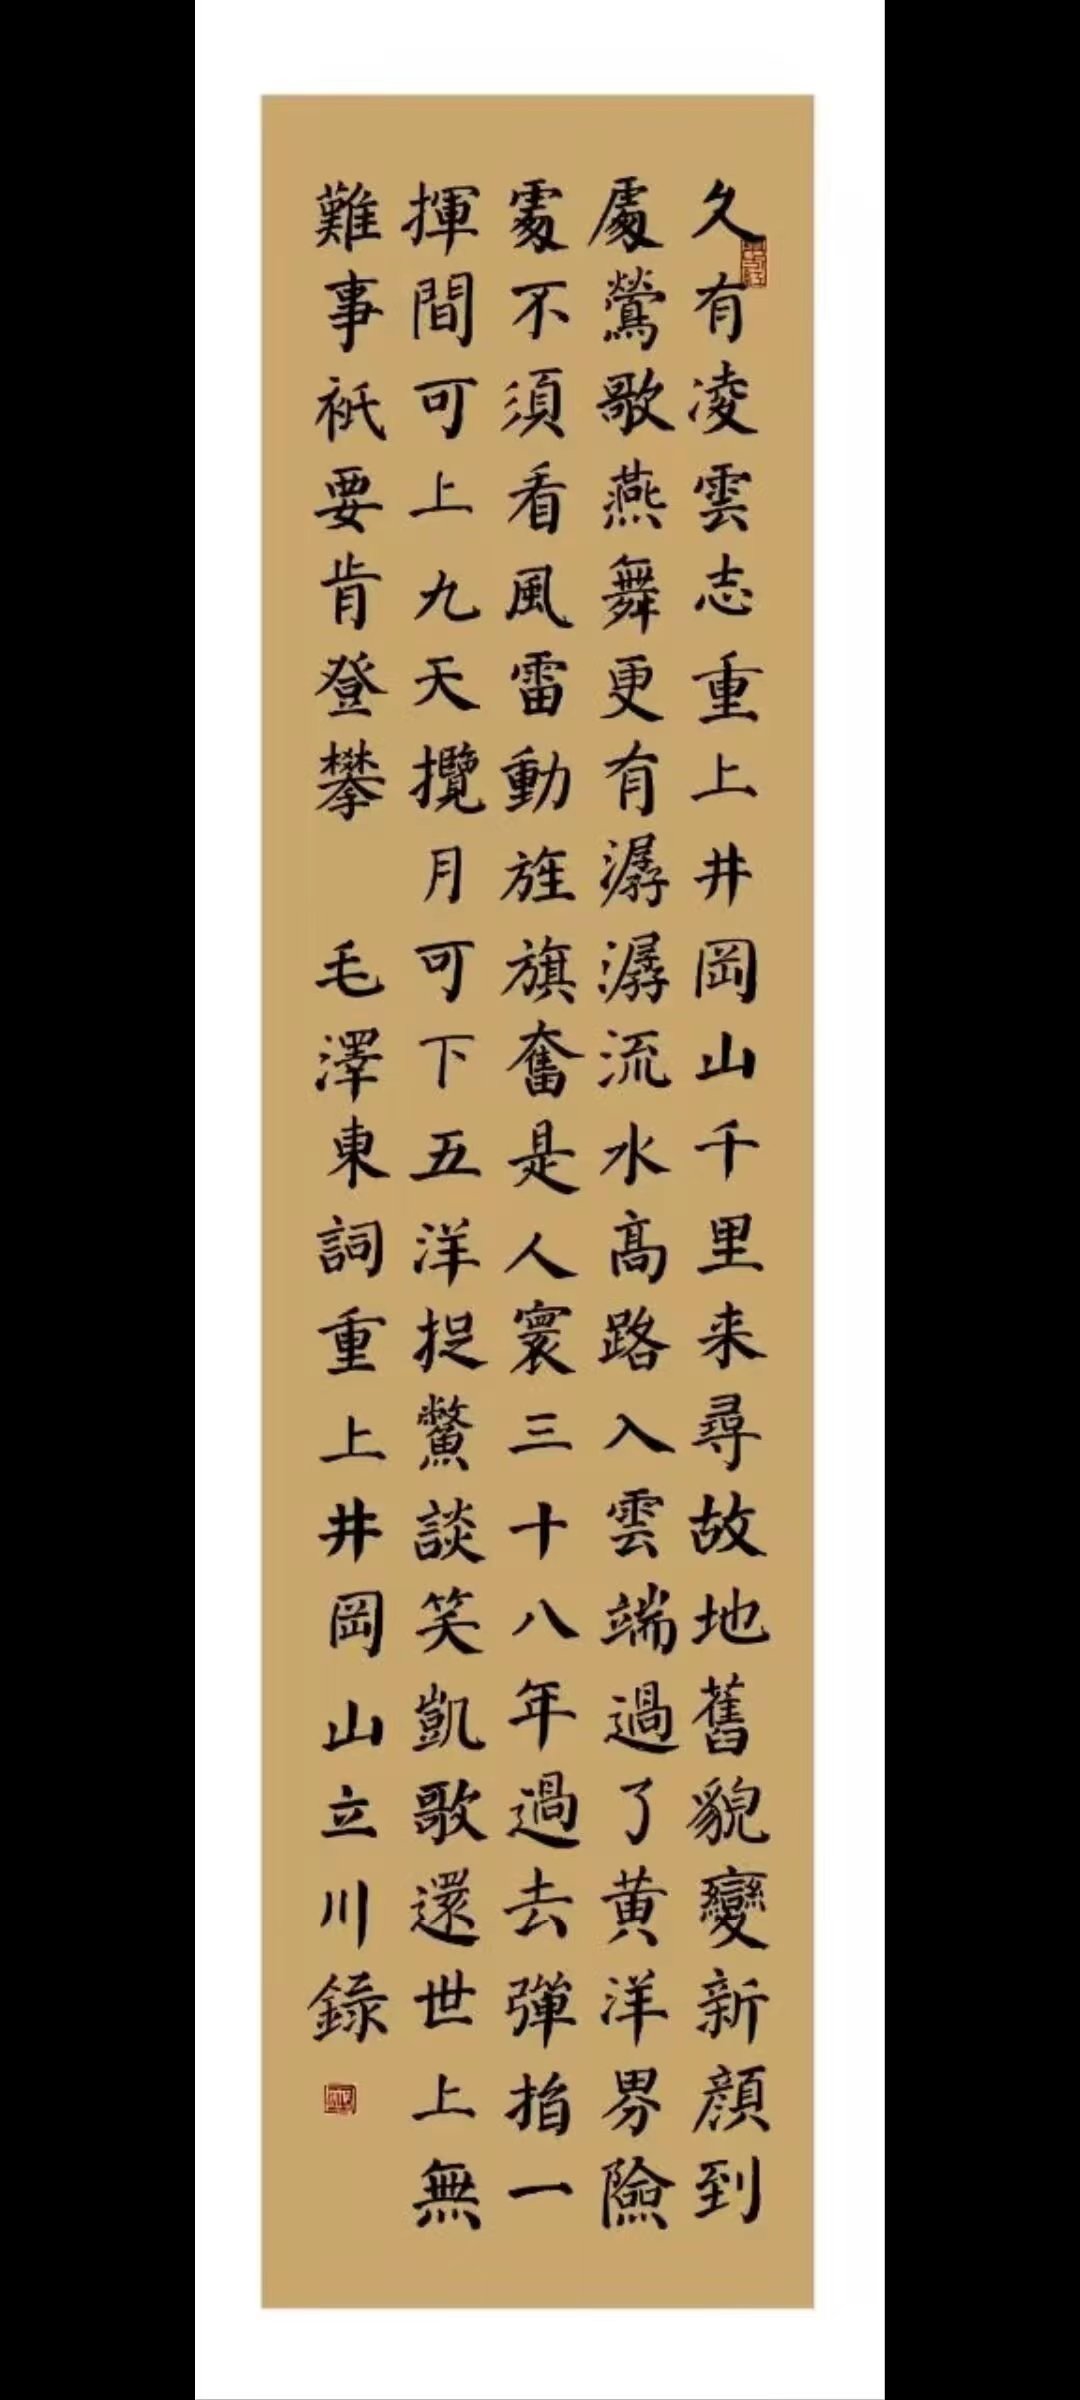 久有凌雲志重上井岡山千里来尋故地舊貌變新顔到
處鶯歌燕舞更有潺潺流水高路入雲端過了黄洋界險
處不須看風雷動旌旗奮是人寰三十八年過去彈指一
揮間可上九天攬月可下五洋捉鱉談笑凱歌還世上無
難事衹要肯登攀 毛澤東詞重上井岡山立川錄